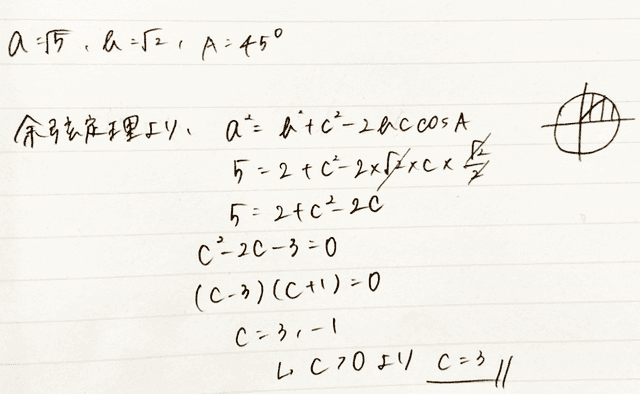 a=√5, b=√2, A=45°
余弦定理より、 a²=b²+c²-2bccosA
5=2+c²-2×√2×c×√2/2
5=2+c²-2c
c²-2c-3=0
(c-3)(c+1)=0
c=3,-1
↳ c>0より c=3//